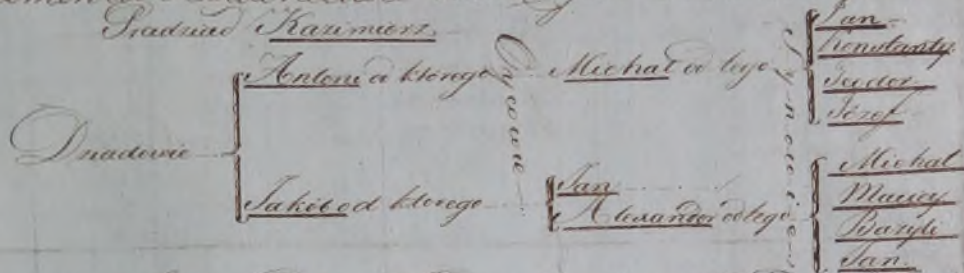 Pradziad Kazimierz
Dziadowie
Antoni od którego
Jakób od którego
Oycowie
Michał od tego
Jan
Alexander od tego
Synowie
Jan
Konstanty
Teodor
Józef
Michał
Maciey
Bazyli
Jan